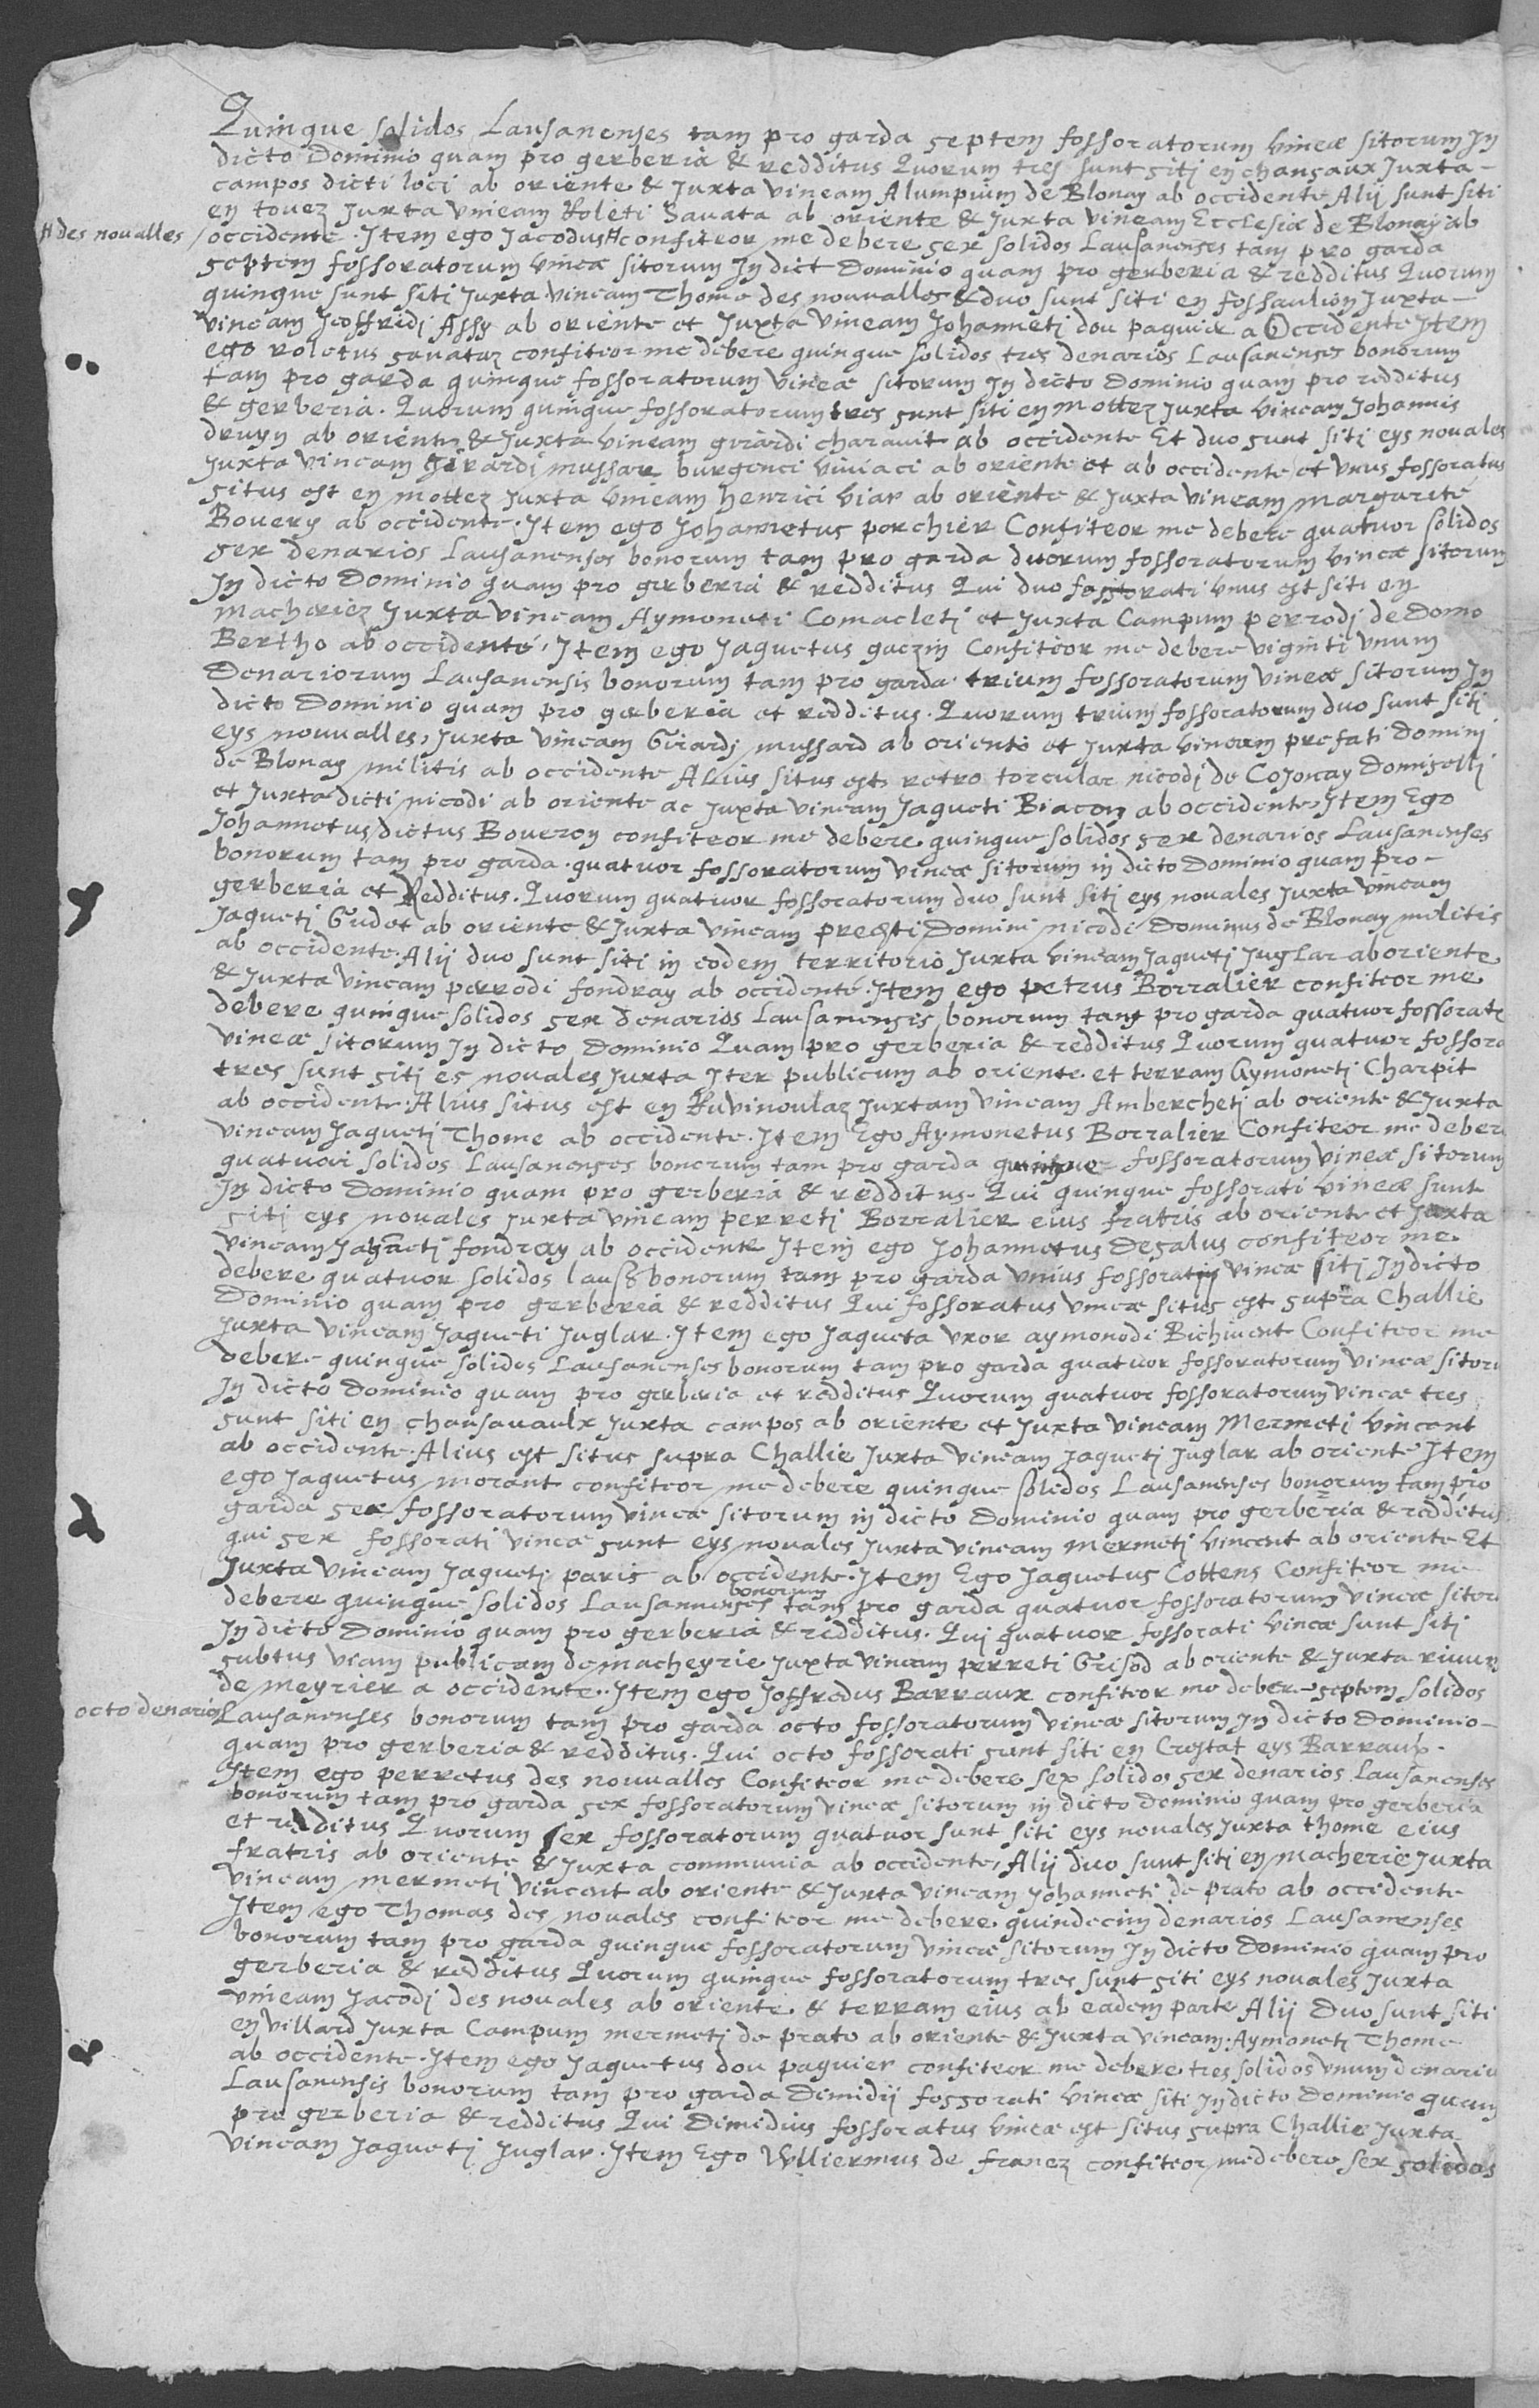 Quinque solidos Lausanenses tam pro garda septem fossoratorum vineæ sitorum In
dicto Dominio quam pro gerberia & redditus Quorum tres sunt siti en chansaux Juxta
campos dicti loci ab oriente & Juxta vineam Alumpium de Blonay ab occidente Alij sunt siti
en touez Juxta vineam Roleti Savata ab oriente & Juxta vineam Ecclesiæ de Blonay ab
# des noualles
occidente. Item ego Jacodus # confiteor me debere sex solidos Lausanenses tam pro garda
septem fossoratorum vineæ sitorum In dict Dominio quam pro gerberia & redditus Quorum
quinque sunt siti Juxta vineam Thome des nouualles & duo sunt siti en fossaulion Juxta
vineam Jeoffredi Assy ab oriente et Juxta vineam Johanneti dou paquier a Occidente Item
ego roletus savataz confiteor me debere quinque solidos tres denarios Lausanenses bonorum
tam pro garda quinque fossoratorum vineæ sitorum In dicto Dominio quam pro redditus
& gerberia. Quorum quinque fossoratorum tres sunt siti en Mottez Juxta vineam Johannis
druyn ab oriente & Juxta vineam girardi charauit ab occidente Et duo sunt siti eys nouales
Juxta vineam Girardi mussar burgenci viviaci ab oriente et ab occidente et vnus fossoratus
situs est en mottez Juxta vineam henrici viar ab oriente & Juxta vineam margarete
Bouery ab occidente. Item ego Johannetus porchier Confiteor me debere quatuor solidos
sex denarios Lausanenses bonorum tam pro garda duorum fossoratorum vineæ sitorum
In dicto Dominio quam pro gerberia & redditus Qui duo fossorati vnus est siti en
macheriez Juxta vineam Aymoneti Comacleti et Juxta Campum perrodi de Domo
Bertho ab occidente, Item ego Jaquetus gaczin Confiteor me debere viginti vnum
Denariorum Lausanensis bonorum tam pro garda trium fossoratorum vineæ sitorum In
dicto Dominio quam pro gerberia et redditus. Quorum trium fossoratorum duo sunt siti
eys nouualles, Juxta vineam Girardi mussard ab oriente et Juxta vineam prefati Domini
de Blonay militis ab occidente Alius situs est retro torcular nicodi de Cojonay Domiselli
et Juxta dicti nicodi ab oriente ac Juxta vineam Jaqueti Biacon ab occidente, Item Ego
Johannetus dictus Boueron confiteor me debere quinque solidos sex denarios Lausanenses
bonorum tam pro garda quatuor fossoratorum vineæ sitorum in dicto Dominio quam pro
gerberia et Redditus. Quorum quatuor fossoratorum duo sunt siti eys nouales Juxta vineam
Jaqueti Gudet ab oriente & Juxta vineam Domini nicodi Dominus de Blonay militis
ab occidente. Alij duo sunt siti in eodem territorio Juxta vineam Jaqueti Juglar ab oriente
& Juxta vineam perrodi fondray ab occidente. Item ego petrus Borralier confiteor me
debere quinque solidos sex denarios Lausanensis bonorum tam pro garda quatuor fossorat
vineæ sitorum In dicto Dominio Quam pro gerberia & redditus Quorum quatuor fossora
tres sunt siti es nouales Juxta Iter publicum ab oriente et terram Aymoneti Charpit
ab occidente. Alius situs est en Ruvinoulaz Juxtam vineam Ambercheti ab oriente & Juxta
vineam Jaqueti Thome ab occidente. Item Ego Aymonetus Borralier Confiteor me deber
quatuor solidos Lausanenses bonorum tam pro garda quinque fossoratorum vineæ sitorum
In dicto Dominio quam pro gerberia & redditus. Qui quinque fossorati vineæ sunt
siti eys nouales Juxta vineam perreti Borralier eius fratris ab oriente et Juxta
vineam fondray ab occidente Item ego Johannetus Desalus confiteor me
debere quatuor solidos laus bonorum tam pro garda vnius fossorati vineæ siti In dicto
Dominio quam pro gerberia & redditus Qui fossoratus vineæ situs est supra Challie
Juxta vineam Jaqueti Juglar. Item ego Jaqueta vxor aymonodi Bichivent Confiteor me
debere quinque solidos Lausanenses bonorum tam pro garda quatuor fossoratorum vineæ sitoru
In dicto Dominio quam pro gerberia et redditus Quorum quatuor fossoratorum vineæ tres
sunt siti en chansavaulx Juxta campos ab oriente et Juxta vineam Mermeti vincent
ab occidente. Alius est situs supra Challie Juxta vineam Jaqueti Juglar ab oriente Item
ego Jaquetus morant confiteor me debere quinque solidos Lausanenses bonorum tam pro
garda sex fossoratorum vineæ sitorum in dicto Dominio quam pro gerberia & redditus
qui sex fossorati vineæ sunt eys nouales Juxta vineam mermeti vincent ab oriente Et
Juxta vineam Jaqueti paris ab occidente. Item Ego Jaquetus Cottens Confiteor me
bonorum
debere quinque solidos Lausannenses tam pro garda quatuor fossoratorum vineæ sitor
In dicto Dominio quam pro gerberia & redditus. Qui quatuor fossorati vineæ sunt siti
subtus viam publicam de macheyrie Juxta vineam perreti Grisod ab oriente & Juxta rivum
de meyrier a occidente. Item ego Joffredus Barraux confiteor me debere septem solidos
octo denarios
Lausanenses bonorum tam pro garda octo fossoratorum vineæ sitorum In dicto Dominio
quam pro gerberia & redditus. Qui octo fossorati sunt siti en Crostat eys Barraux.
Item ego perretus des nouualles Confiteor me debere sex solidos sex denarios Lausanenses
bonorum tam pro garda sex fossoratorum vineæ sitorum in dicto dominio quam pro gerberia
et redditus Quorum sex fossoratorum quatuor sunt siti eys nouales Juxta thome eius
fratris ab oriente & Juxta communia ab occidente, Alij duo sunt siti en macherie Juxta
vineam mermeti vincent ab oriente & Juxta vineam Johanneti de prato ab occidente
Item ego Thomas des nouales confiteor me debere quindecim denarios Lausanenses
bonorum tam pro garda quinque fossoratorum vineæ sitorum In dicto Dominio quam pro
gerberia & redditus Quorum quinque fossoratorum tres sunt siti eys nouales Juxta
vineam Jacodi des nouales ab oriente & terram eius ab eadem parte Alij Duo sunt siti
en Villard Juxta Campum mermeti de prato ab oriente & Juxta vineam Aymoneti Thome
ab occidente. Item ego Jaquetus dou paquier confiteor me debere tres solidos vnum denariu
Lausanensis bonorum tam pro garda Dimidij fossorati vineæ siti In dicto Dominio quam
pro gerberia & redditus Qui Dimidius fossoratus vineæ est situs supra Challie Juxta
vineam Jaqueti Juglar. Item Ego Wlliermus de franez confiteor me debere sex solidos